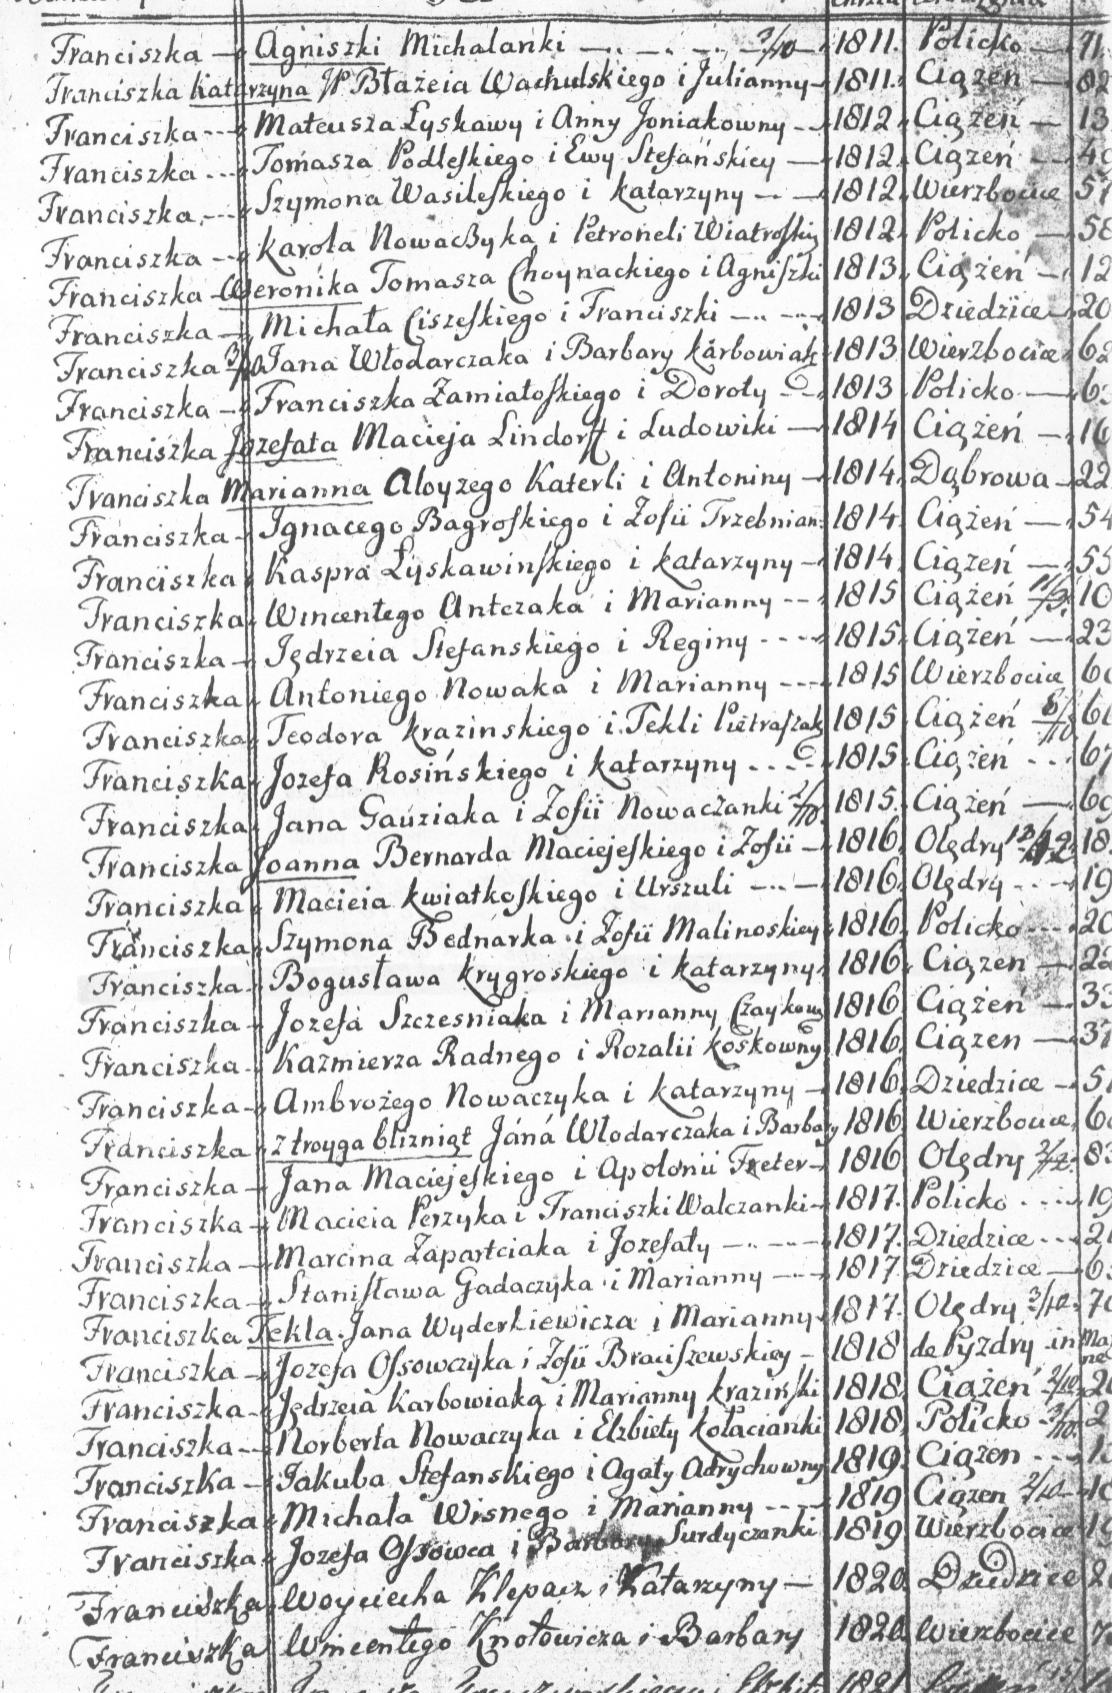 Franciszka — Agniszki Michalanki — 3/10 — 1811. Policko — 91.
Franciszka Katarzyna JP Błażeia Wachulskiego i Julianny — 1811. Ciążeń — 82
Franciszka --- Mateusza Łyskawy i Anny Joniakowny — 1812. Ciążeń — 13
Franciszka --- Tomasza Podleskiego i Ewy Stefańskiey — 1812. Ciążeń — 40
Franciszka --- Szymona Wasileskiego i Katarzyny — 1812. Wierzbocice 57
Franciszka --- Karola Nowaczyka i Petroneli 1812. Policko — 58
Franciszka — Weronika Tomasza Choynackiego i Agniszki 1813. Ciążeń — 12
Franciszka — Michała Ciszeskiego i Franciszki — 1813 Dziedzice — 20
Franciszka 3/10 Jana Włodarczaka i Barbary Karbowiak 1813 Wierzbocice 62
Franciszka — Franciszka Zamiatoskiego i Doroty — 1813 Policko — 6
Franciszka Jozefata Macieja Lindorff i Ludowiki — 1814 Ciążeń — 16
Franciszka Marianna Aloyzego Katerli i Antoniny — 1814. Dąbrowa — 22
Franciszka — Ignacego Bagroskiego i Zofii Trzebnian: 1814. Ciążeń — 54
Franciszka Kaspra Łyskawinskiego i Katarzyny — 1814. Ciążeń — 55
Franciszka — Wincentego Antczaka i Marianny --- 1815 Ciążeń 11/3. 10
Franciszka — Jędrzeia Stefanskiego i Reginy ---- 1815. Ciążeń — 23
Franciszka — Antoniego Nowaka i Marianny --- 1815 Wierzbocice 60
Franciszka Teodora Krazinskiego i Tekli Pietraszak 1815. Ciążeń 8/10 61
Franciszka — Jozefa Rosińskiego i Katarzyny ---- 1815. Ciążeń ... 67
Franciszka Jana Gauziaka i Zofii Nowaczanki 2/10. 1815. Ciążeń — 69
Franciszka Joanna Bernarda Maciejeskiego i Zofii — 1816. Olędry 18
Franciszka Macieia Kwiatkoskiego i Urszuli --- 1816. Olędry --- 19
Franciszka Szymona Bednarka i Zofii Malinoskiey 1816. Policko --- 20
Franciszka Bogusława Krygroskiego i Katarzyny 1816. Ciązeń — 22
Franciszka — Jozefa Szczesniaka i Marianny 1816 Ciążeń — 33
Franciszka Kazmierza Radnego i Rozalii Koskowny 1816. Ciązen — 37
Franciszka — Ambrożego Nowaczyka i Katarzyny — 1816. Dziedzice — 5
Franciszka — z troyga bliźniąt Jana Włodarczaka i Barbary 1816. Wierzbocice 6
Franciszka — Jana Maciejeskiego i Apolonii Freter — 1816 Olędry 2/12. 83
Franciszka — Macieia Perzyka i Franciszki Walczanki — 1817. Policko .... 19
Franciszka — Marcina Zapartciaka i Jozefaty --- 1817. Dziedzice --- 2
Franciszka — Stanisława Gadaczyka i Marianny --- 1817. Dziedzice — 6
Franciszka Tekla Jana Wyderkiewicza i Marianny 1817. Olędry 3/10. 7
Franciszka — Jozefa Ossowczyka i Zofii Braciszewskiey — 1818 de Pyzdry in
Franciszka — Jędrzeia Karbowiaka i Marianny Krazinski 1818. Ciążeń 2/10 2
Franciszka — Norberta Nowaczyka i Elzbiety Kołacianki 1818. Policko 3/10. 2
Franciszka — Jakuba Stefanskiego i Agaty Adrychowny 1819. Ciązen ... 1
Franciszka Michała Wrsnego i Marianny --- 1819 Ciązen 2/10 — 10
Franciszka Jozefa Ossowca i Barbary Surdyczanki 1819 Wierzbocice 19
Franciszka Woyciecha Klepacz i Katarzyny — 1820. Dziedzice 2
Franciszka Wincentego Knotowicza i Barbary 1820. Wierzbocice 7